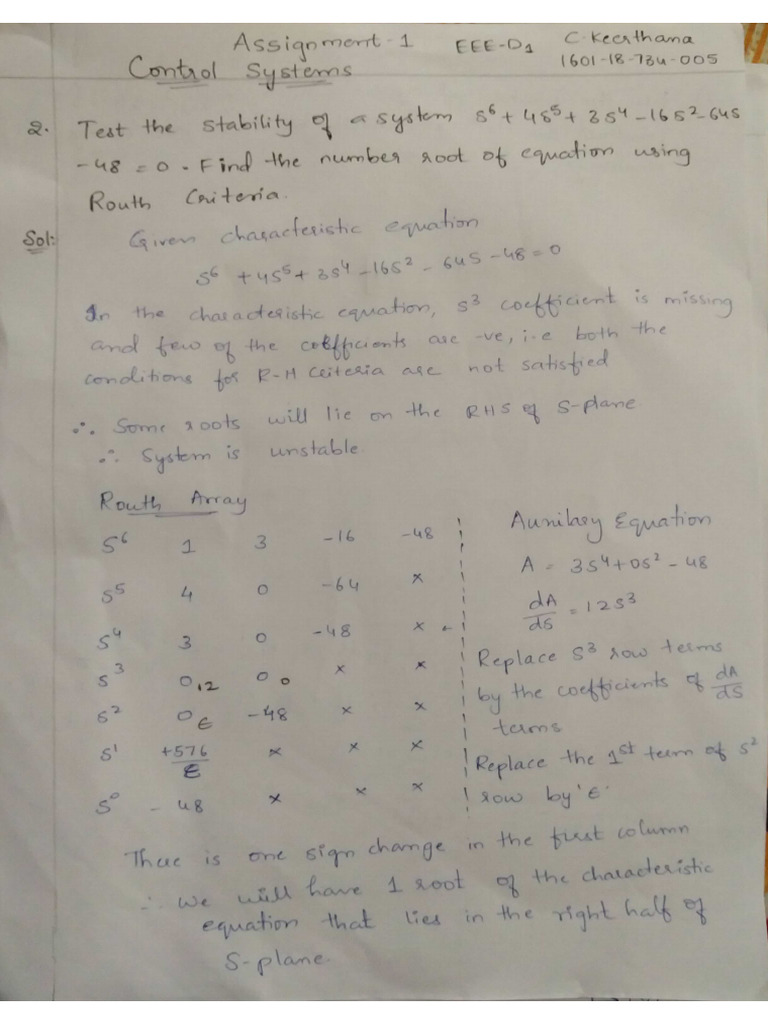 Assignment-1
EEE-D1
C.Keerthana
1601-18-734-005
Control Systems
2. Test the stability of a system s⁶ + 4s⁵ + 3s⁴ - 16s² - 64s
- 48 = 0. Find the number root of equation using
Routh Criteria.
Sol: Given characteristic equation
s⁶ + 4s⁵ + 3s⁴ - 16s² - 64s - 48 = 0
In the characteristic equation, s³ coefficient is missing
and few of the coefficients are -ve, i.e both the
conditions for R-H Criteria are not satisfied
∴ Some roots will lie on the RHS of S-plane.
∴ System is unstable.
Routh Array
S⁶ 1 3 -16 -48
S⁵ 4 0 -64 ×
S⁴ 3 0 -48 × ←
S³ 0,12 0 0 × ×
S² 0 ε -48 × ×
S¹ +576/ε × × ×
S⁰ -48 × × ×
Auxilary Equation
A = 3s⁴ + 0s² - 48
dA/ds = 12s³
Replace s³ row terms
by the coefficients of dA/ds
terms
Replace the 1st term of s²
row by 'ε'
There is one sign change in the first column
∴ We will have 1 root of the characteristic
equation that lies in the right half of
S-plane.